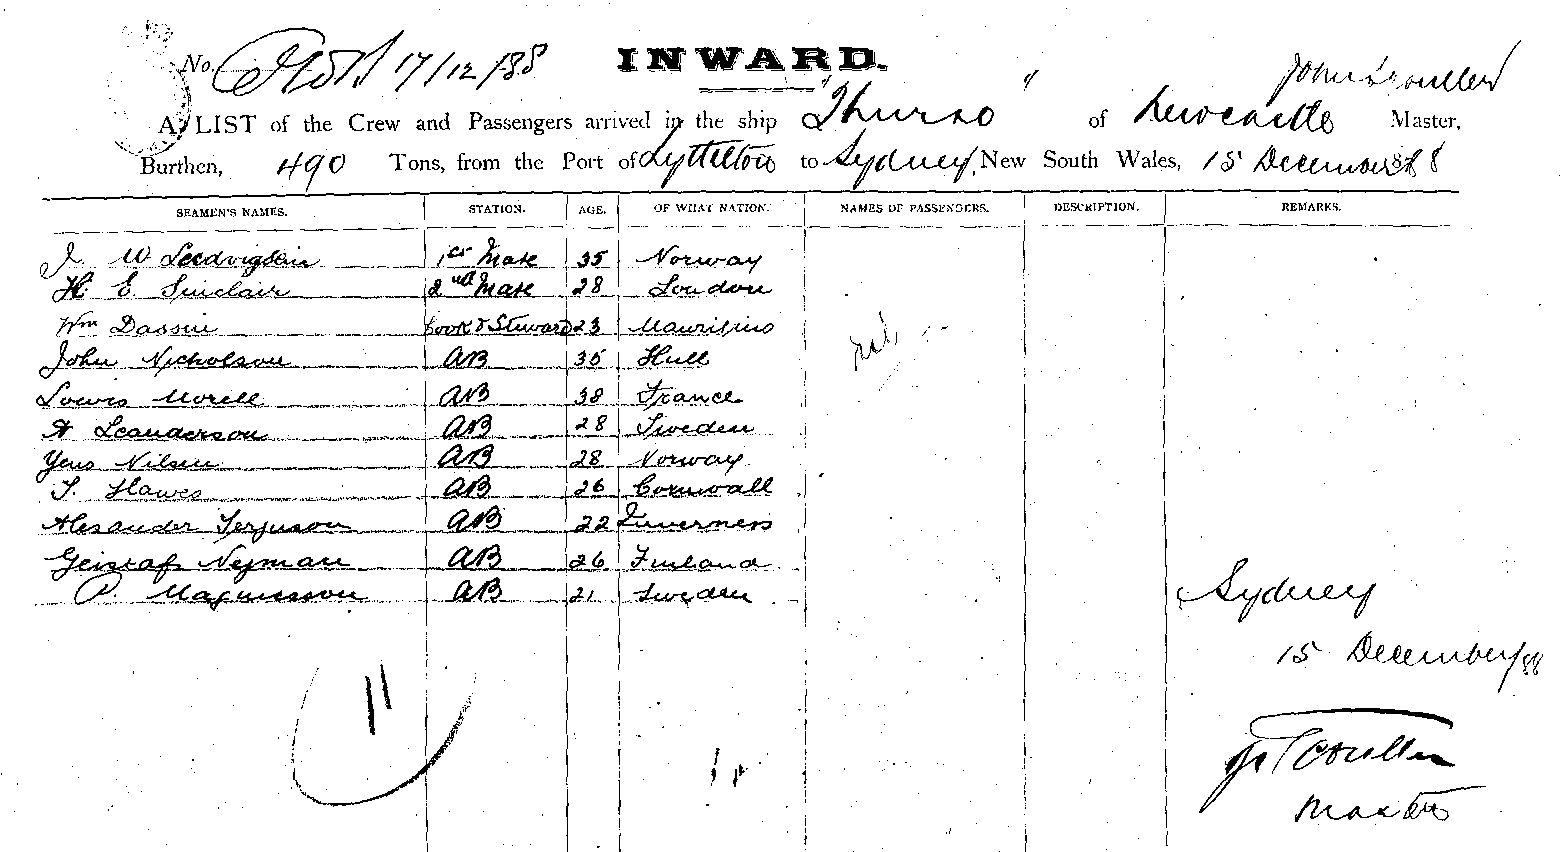 No. 17/12/88
INWARD.
A LIST of the Crew and Passengers arrived in the ship "Thurso" of Newcastle John Master,
Burthen, 490 Tons, from the Port of Lyttelton to Sydney, New South Wales, 15 December 1888
SEAMEN'S NAMES. STATION. AGE. OF WHAT NATION. NAMES OF PASSENGERS. DESCRIPTION. REMARKS.
W 1st Mate 35 Norway
H. E. Sinclair 2nd Mate 28 London
Wm Dassin Cook & Steward 23 Mauritius
John Nicholson AB 35 Hull
Lowis Morell AB 38 France
A Leanderson AB 28 Sweden
Yens Nilsen AB 28 Norway
T. Hawes AB 26 Cornwall
Alexander Ferguson AB 22 Inverness
Nyman AB 26 Finland
P. Magnusson AB 21 Sweden
Nil
Sydney
15 December/88
11
Master